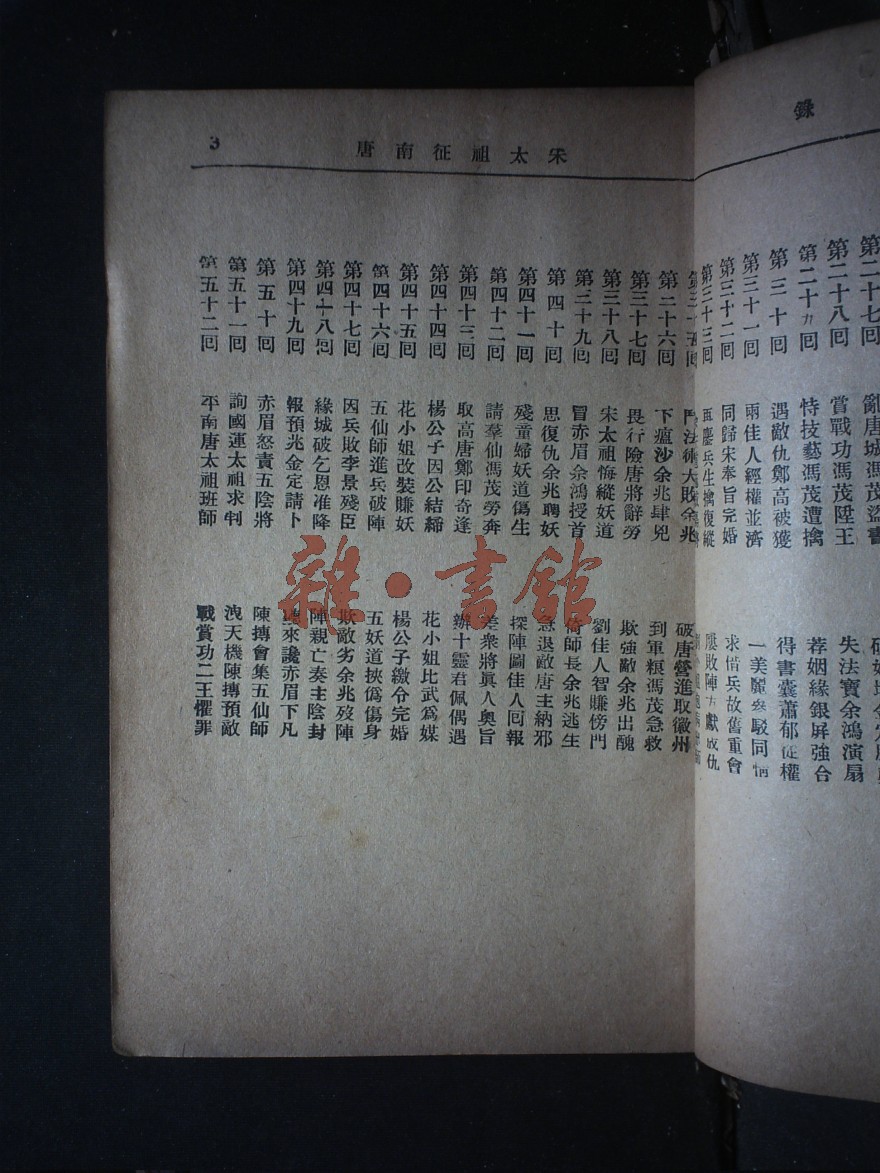 錄
第二十七回 亂唐城馮茂盜書
第二十八回 賞戰功馮茂陞王 失法寶余鴻演扇
第二十九回 恃技藝馮茂遭擒 荐姻緣銀屏強合
第三十回 遇敵仇鄭高被獲 得書囊蕭郁從權
第三十一回 兩佳人經權並濟 一美麗參駁同情
第三十二回 同歸宋奉旨完婚 求借兵故舊重會
第三十三回 再鏖兵生擒復縱 屢敗陣方獻成仇
宋太祖征南唐
3
第三十五回 鬥法術大敗余兆 破唐營進取徽州
第三十六回 下瘟沙余兆肆兇 到軍糧馮茂急救
第三十七回 畏行險唐將辭勞 欺強敵余兆出醜
第三十八回 宋太祖悔縱妖道 劉佳人智賺傍門
第三十九回 冒赤眉余鴻授首 倚師長余兆逃生
第四十回 思復仇余兆聘妖 急退敵唐主納邪
第四十一回 殘童婦妖道傷生 探陣圖佳人回報
第四十二回 請羣仙馮茂勞奔 差衆將眞人奧旨
第四十三回 取高唐鄭印奇逢 辦十靈君佩偶遇
第四十四回 楊公子因公結締 花小姐比武爲媒
第四十五回 花小姐改裝賺妖 楊公子繳令完婚
第四十六回 五仙師進兵破陣 五妖道挾僞傷身
第四十七回 因兵敗李景殘臣 欺敵劣余兆歿陣
第四十八回 緣城破乞恩准降 陣親亡奏主陰封
第四十九回 報預兆金定請卜 聽來讒赤眉下凡
第五十回 赤眉怒責五陰將 陳摶會集五仙師
第五十一回 詢國運太祖求判 洩天機陳摶預敵
第五十二回 平南唐太祖班師 戰賞功二王懼罪
雜·書館